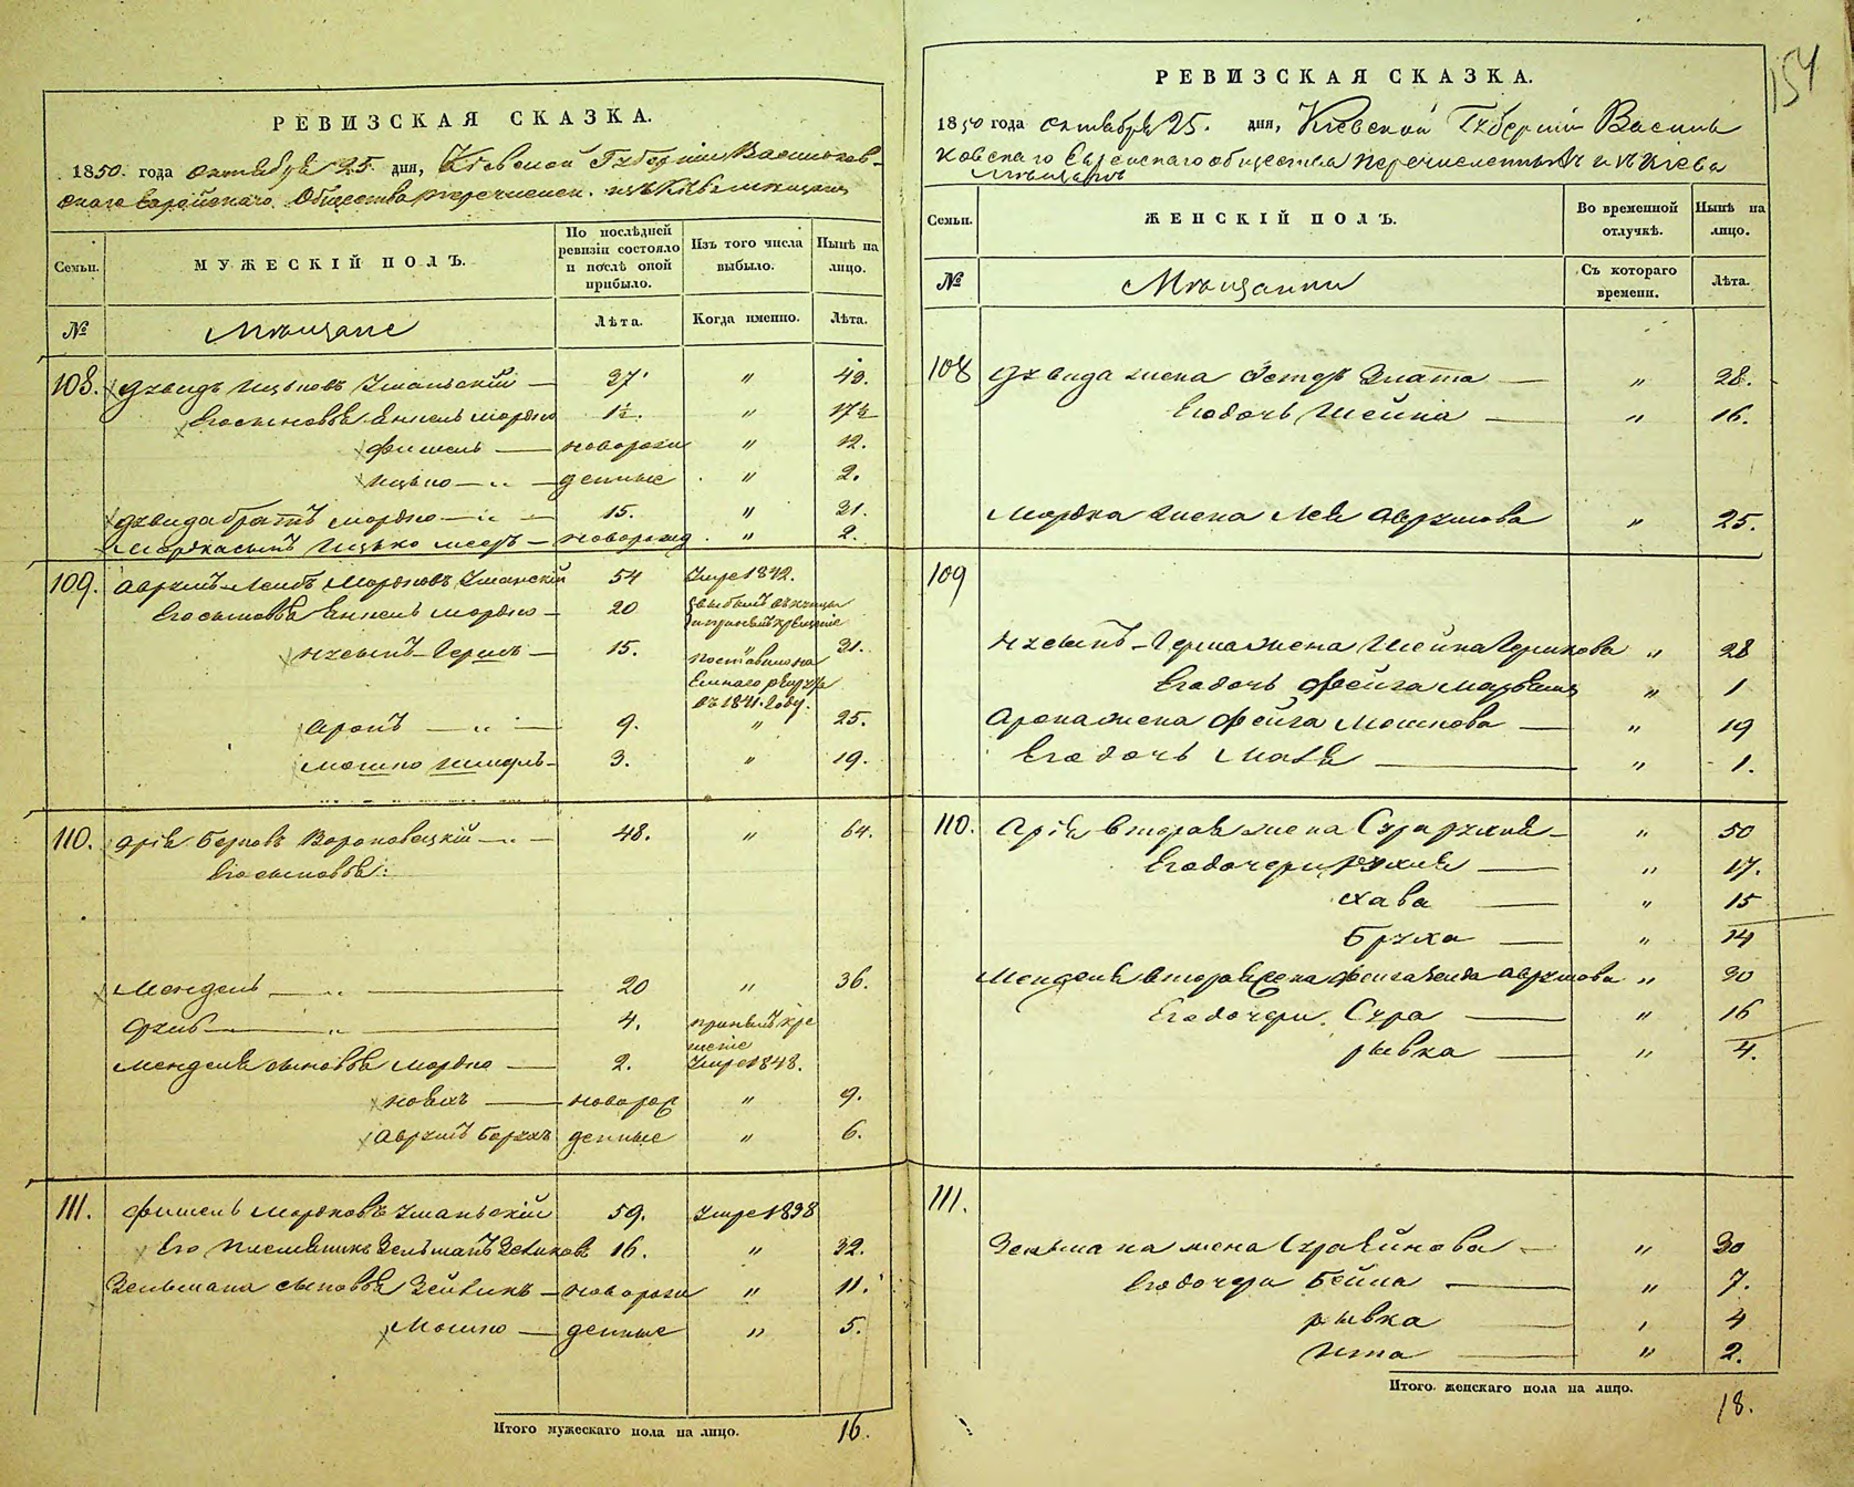 РЕВИЗСКАЯ СКАЗКА.
1850. года октября 25. дня, Кіевской Губерніи Васильков-
скаго Еврейскаго Общества перечислен. изъ Кіева мещанъ
Семьи.
МУЖЕСКІЙ ПОЛЪ.
По послѣдней ревизіи состояло и послѣ оной прибыло.
Изъ того числа выбыло.
Нынѣ на лицо.
№
Мѣщане
Лѣта.
Когда именно.
Лѣта.
108. Дувидъ Ицьковъ Уманьскій — 37 " 49.
Его сыновья Янкель Мордко 1½. " 17½
Фишель — новорож " 12.
Ицько — " — денные " 2.
Дувида братъ Мордко — " — 15. " 31.
Мордка сынъ Ицько Мееръ — новорожд. " 2.
109. Аврумъ-Лейбъ Мордковъ Уманскій 54 Умре 1842.
Его сыновья Янкель Мордко — 20
принялъ крещеніе
Нухымъ-Гершъ — 15. " 31.
поставленъ на
рекрута
въ 1841. году.
Аронъ — " — 9. " 25.
Мошко Шмуль — 3. " 19.
110. Арія Берковъ Вороновецкій — " — 48. " 64.
Его сыновья:
Мендель — " — 20 " 36.
Дувид — " — 4. принялъ кре
щеніе
Менделя сыновья Мордко — 2. Умре 1848.
Новахъ — новорож " 9.
Аврумъ Борухъ денные " 6.
111. Фишель Мордковъ Уманьскій 59. Умре 1838
Его племянникъ Зельманъ Зейликовъ 16. " 32.
Зельмана сыновья Зейликъ — новорож " 11.
Мошко — денные " 5.
Итого мужескаго пола на лицо. 16.
154
РЕВИЗСКАЯ СКАЗКА.
1850 года октября 25. дня, Кіевской Губерніи Василь
ковскаго Еврейскаго общества перечисленныхъ изъ Кіева
мѣщанъ
Семьи.
ЖЕНСКІЙ ПОЛЪ.
Во временной отлучкѣ.
Нынѣ на лицо.
№
Мѣщанки
Съ котораго времени.
Лѣта.
108 Дувида жена Эстеръ Злата — " 28.
Его дочь Шейна — " 16.
Мордка жена Лея Аврумова " 25.
109
Нухымъ-Герша жена Шейна Гершкова " 28
Его дочь Фейга " 1
Арона жена Фейга Мошкова — " 19
Его дочь Маля — " 1.
110. Арія вторая жена Сура Рухля — " 50
Его дочери Рухля — " 17.
Хава — " 15
Бруха — " 14
Менделя вторая жена Фейга Аврумова " 30
Его дочери. Сура — " 16
Рывка — " 4.
111.
Зельмана жена Сура Яйнова — " 30
Его дочери Бейла — " 7.
Рывка — " 4
Ита — " 2.
Итого. женскаго пола на лицо.
18.